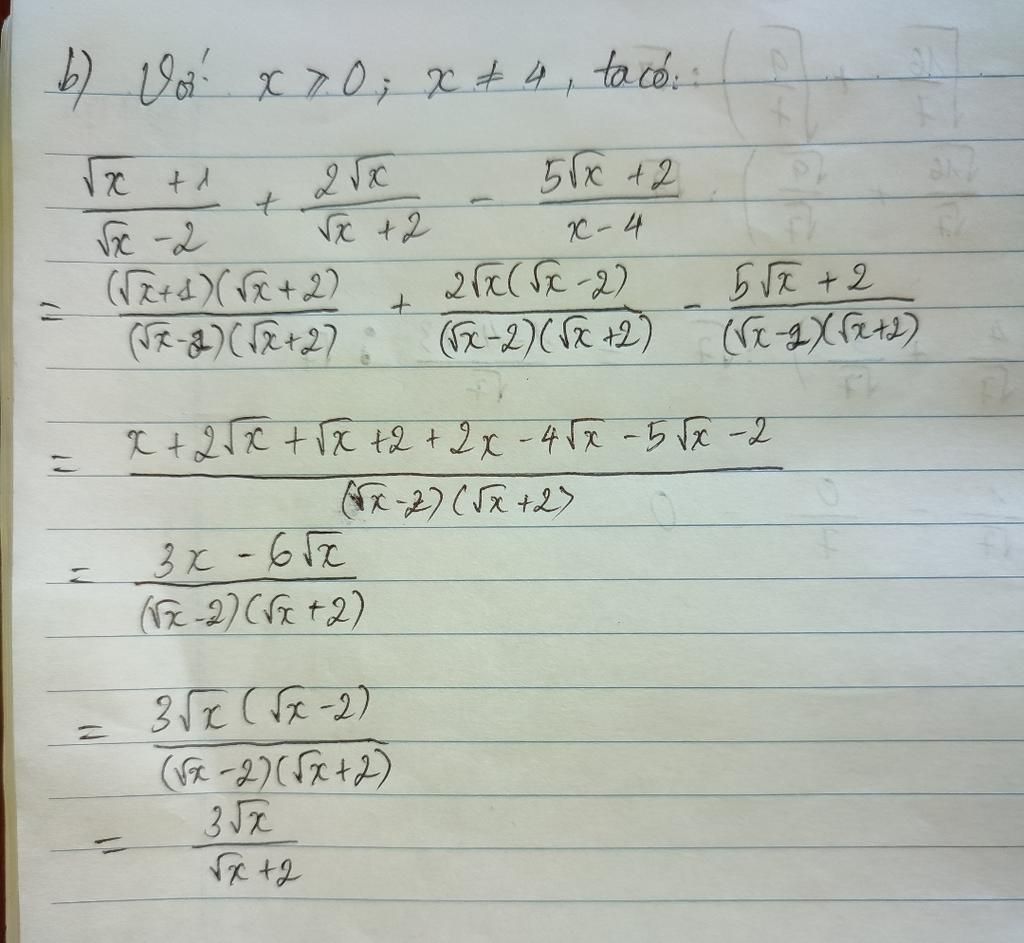 b) Với x ⩾ 0; x ≠ 4, ta có:
(√x + 1)/(√x - 2) + (2√x)/(√x + 2) - (5√x + 2)/(x - 4)
= ((√x+1)(√x+2))/((√x-2)(√x+2)) + (2√x(√x-2))/((√x-2)(√x+2)) - (5√x+2)/((√x-2)(√x+2))
= (x + 2√x + √x + 2 + 2x - 4√x - 5√x - 2)/((√x-2)(√x+2))
= (3x - 6√x)/((√x-2)(√x+2))
= (3√x(√x-2))/((√x-2)(√x+2))
= (3√x)/(√x+2)